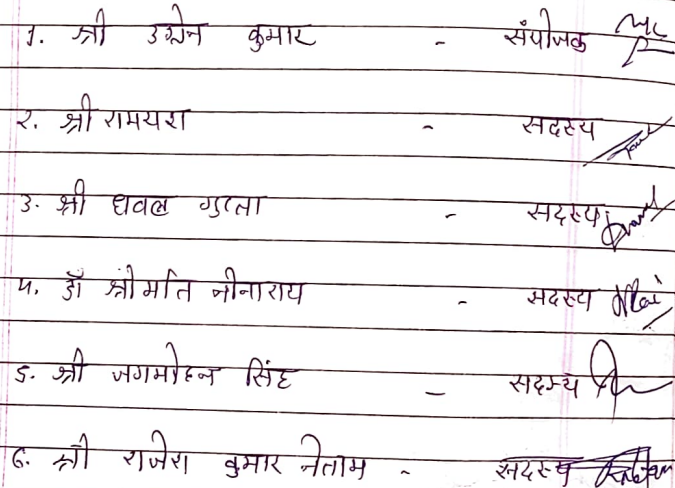 1. श्री उग्रेन कुमार - संयोजक
२. श्री रामयश - सदस्य
३. श्री धवल गुप्ता - सदस्य
४. डॉ श्रीमति नीनाराय - सदस्य
5. श्री जगमोहन सिंह - सदस्य
६. श्री राजेश कुमार नेताम - सदस्य